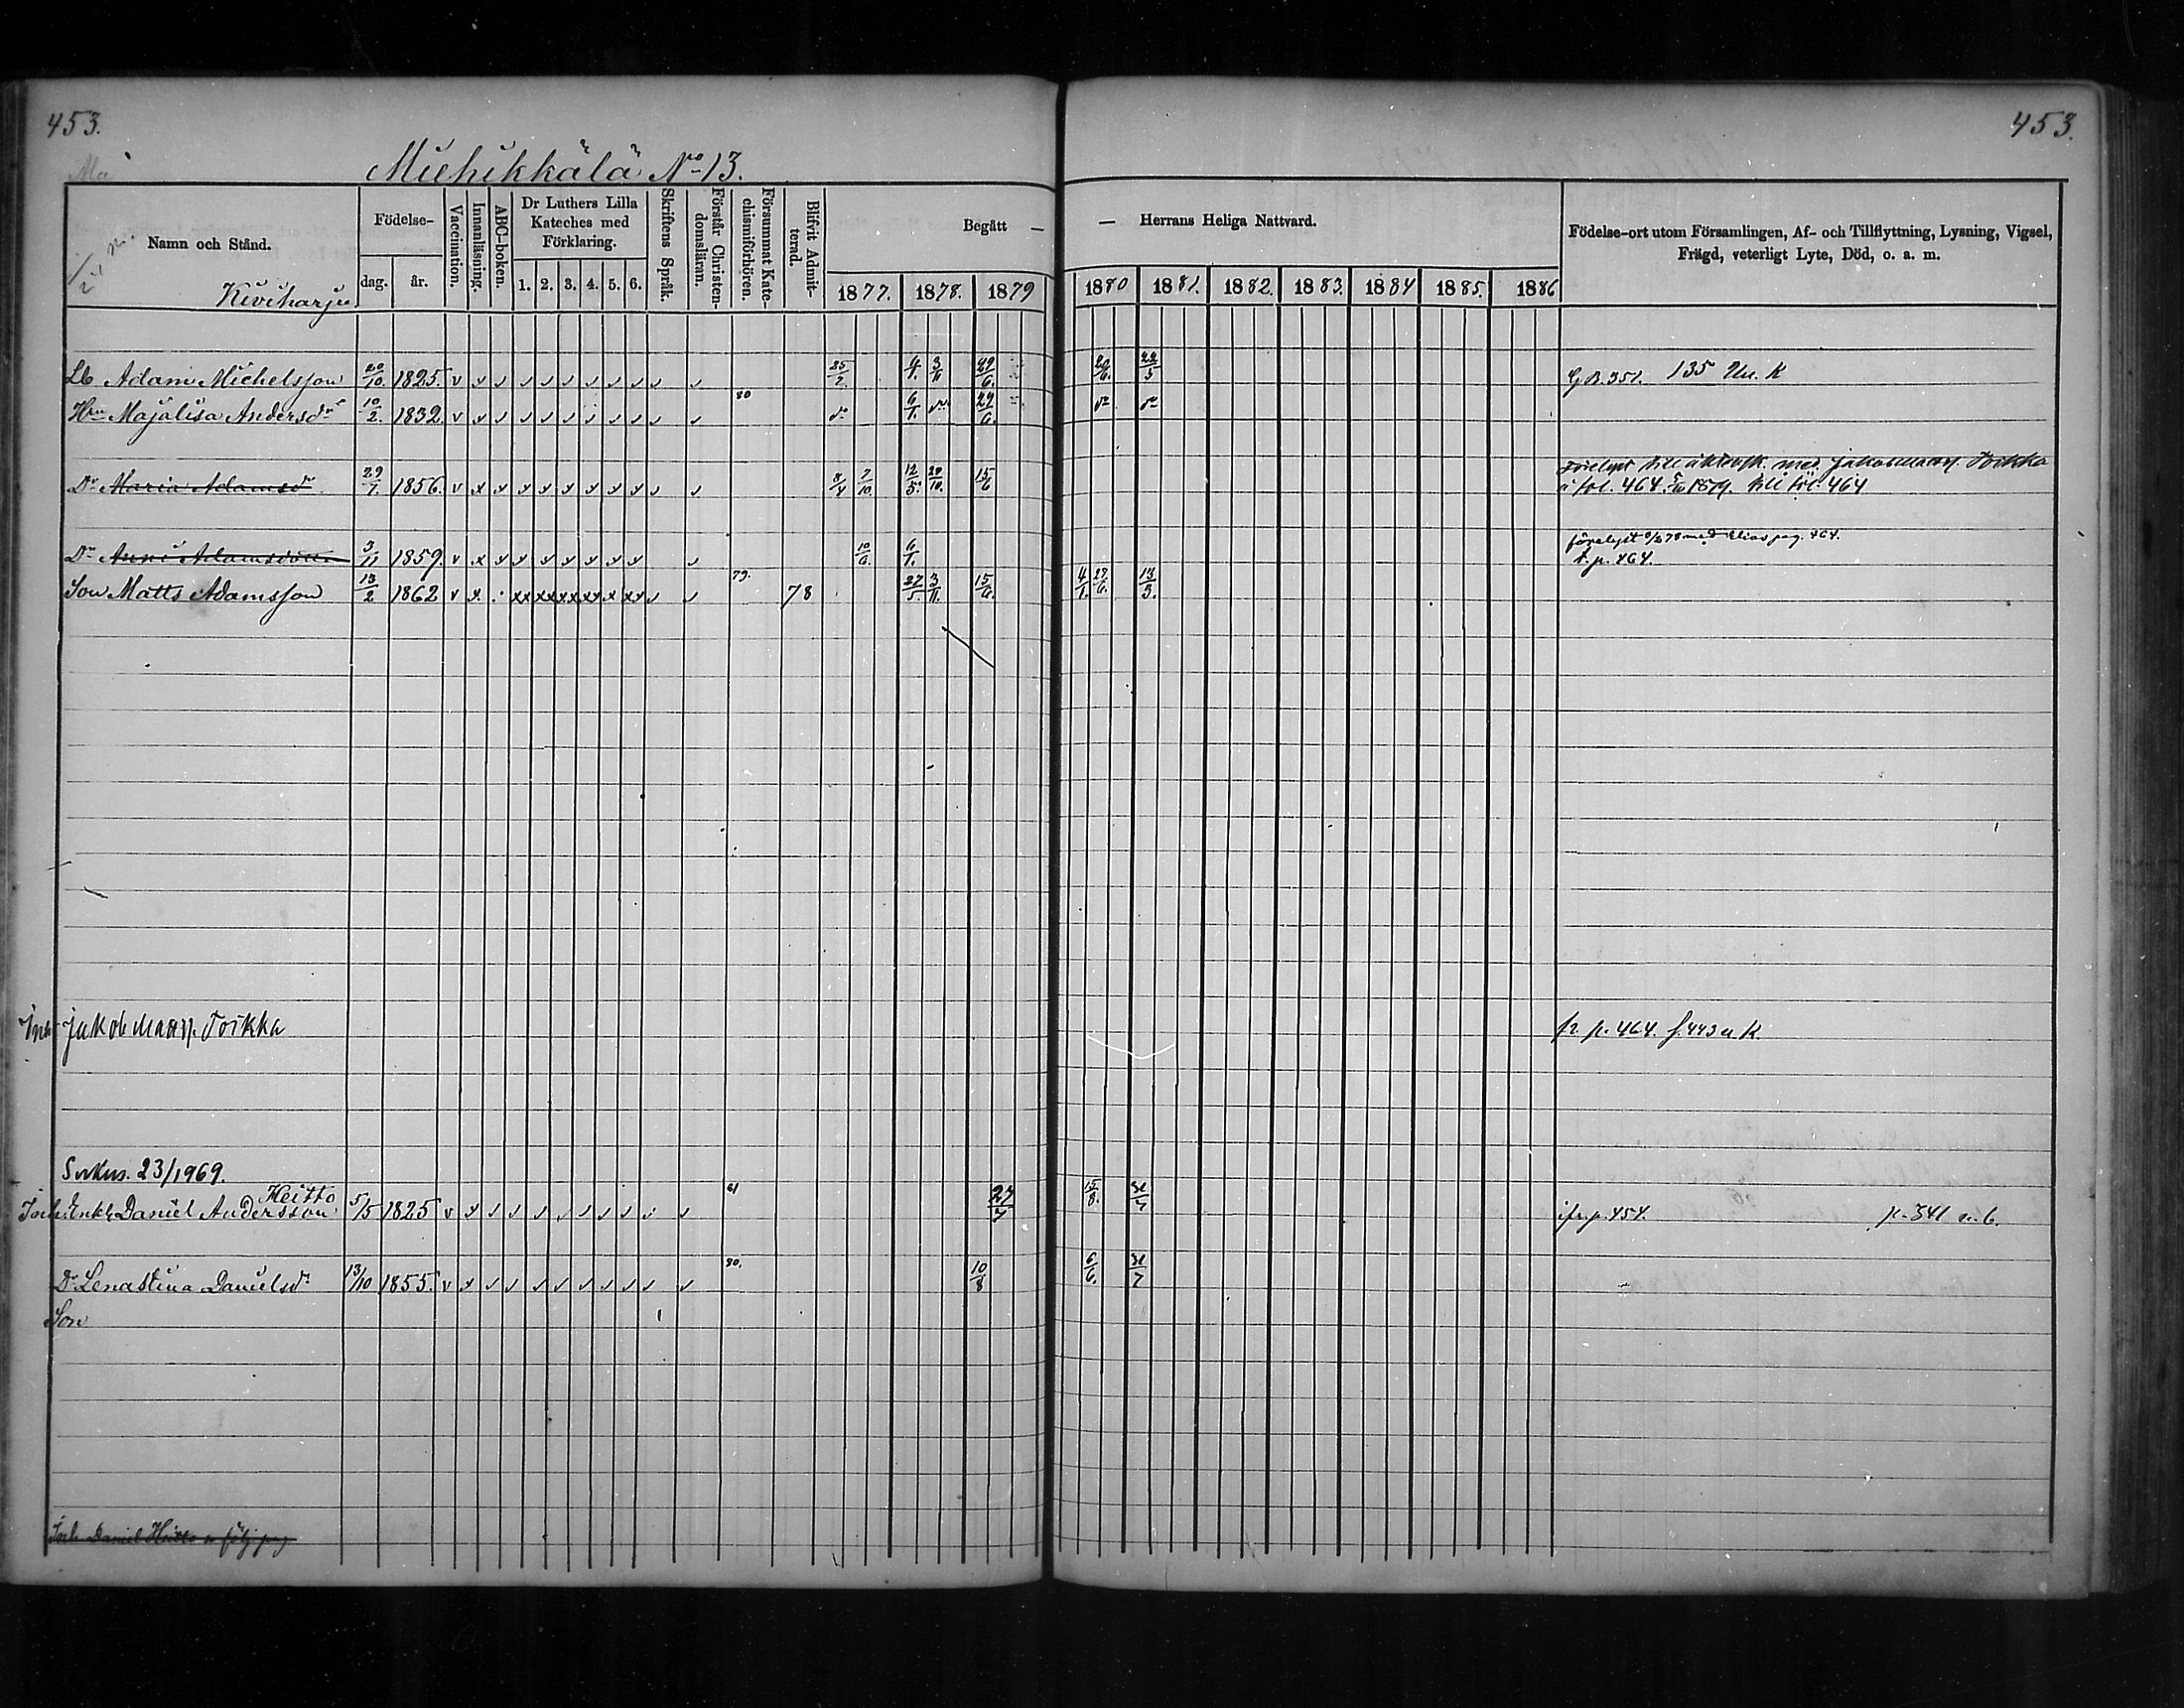 453.
453.
Miehikkälä No 13.
Namn och Stånd.
Kiviharju
Födelse-
dag.
år.
Vaccination.
Innanläsning.
ABC-boken.
Dr Luthers Lilla Kateches med Förklaring.
1. 2. 3. 4. 5. 6.
Skriftens Språk.
Förstår Christendomsläran.
Försummat Katechismiförhören.
Blifvit Admitterad.
Begått — — Herrans Heliga Nattvard.
1877. 1878. 1879 1880 1881. 1882. 1883. 1884 1885. 1886
Födelse-ort utom Församlingen, Af- och Tillflyttning, Lysning, Vigsel,
Frägd, veterligt Lyte, Död, o. a. m.
Lb Adam Michelsson 20/10. 1825. v x 25/2. 4/1. 3/11 29/6. 20/6. 22/5 G.B. 351. 135 Un. K
Hu Majalisa Andersdr 10/2. 1832. v x 80 do 6/1. do 29/6. do do
Dr Maria Adamsdr 29/7 1856. v x 8/4 7/10. 12/5. 20/10. 15/6 Förelyst till äktensk. med Jakob Toikka
å fol. 464. 1879. till fol. 464
Dr Anni Adamsdotter 3/11 1859. v x 10/6. 6/1. förelyst 78 med Elias pag. 464.
t. p. 464.
Son Matts Adamsson 13/2 1862 v x 79. 78 27/5. 3/11. 15/6. 4/1. 27/6. 13/3.
Inh Jakob Toikka fr p. 464. f. 443 u K.
Sirkus. 23/1969.
Heitto
Inh. Enkl. Daniel Andersson 5/5 1825 v x 81 27/7 15/8. 31/7 ifr. p. 454. p. 341 u. b.
Dr Lenastina Danielsdr 13/10 1855. v x 80. 10/8 6/6. 31/7
Son
Inh Daniel Heitto å följ. pag